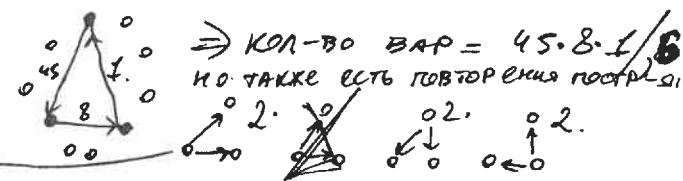 45 1. ⇒ КОЛ-ВО ВАР = 45·8·1/6
8 НО ТАКЖЕ ЕСТЬ ПОВТОРЕНИЯ
2. 2. 2.